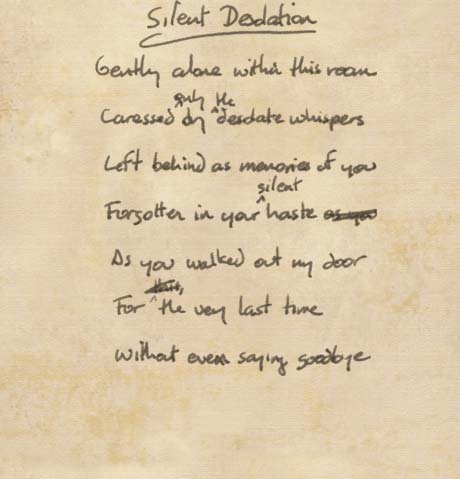 Silent Desolation
Gently alone within this room
Caressed only by the desolate whispers
Left behind as memories of you
Forgotten in your silent haste as you
As you walked out my door
For this, the very last time
without even saying goodbye